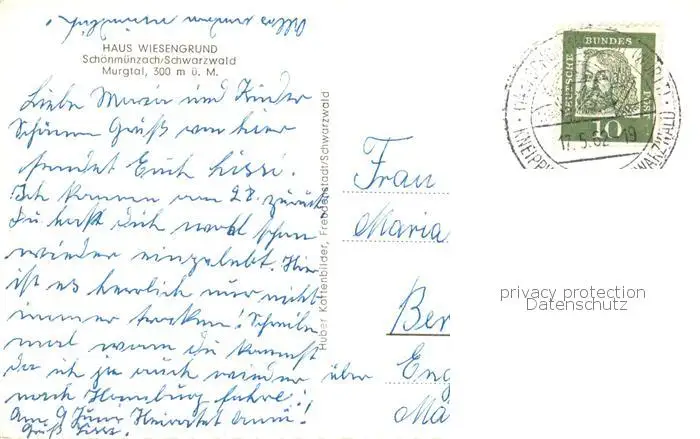 HAUS WIESENGRUND
Schönmünzach/Schwarzwald
Murgtal, 300 m ü. M.
Liebe Maria und Kinder
Schönen Gruß von hier
sendet Euch Lissi.
Ich komme am 28. zurück
Du hast Dich wohl schon
wieder eingelebt. Hier
ist es herrlich nur nicht
immer trocken! Schreibe
mal wann Du kommst
da ich ja auch wieder
nach Homburg fahre!
Am 9 Juni Heiratet Anni!
Gruß Lissi.
Huber Kartenbilder, Freudenstadt/Schwarzwald
Frau
Maria
Ber
über Eng
Ma
DEUTSCHE BUNDES POST
10
17.5.62-19
KNEIPP
WARZWALD
privacy protection
Datenschutz